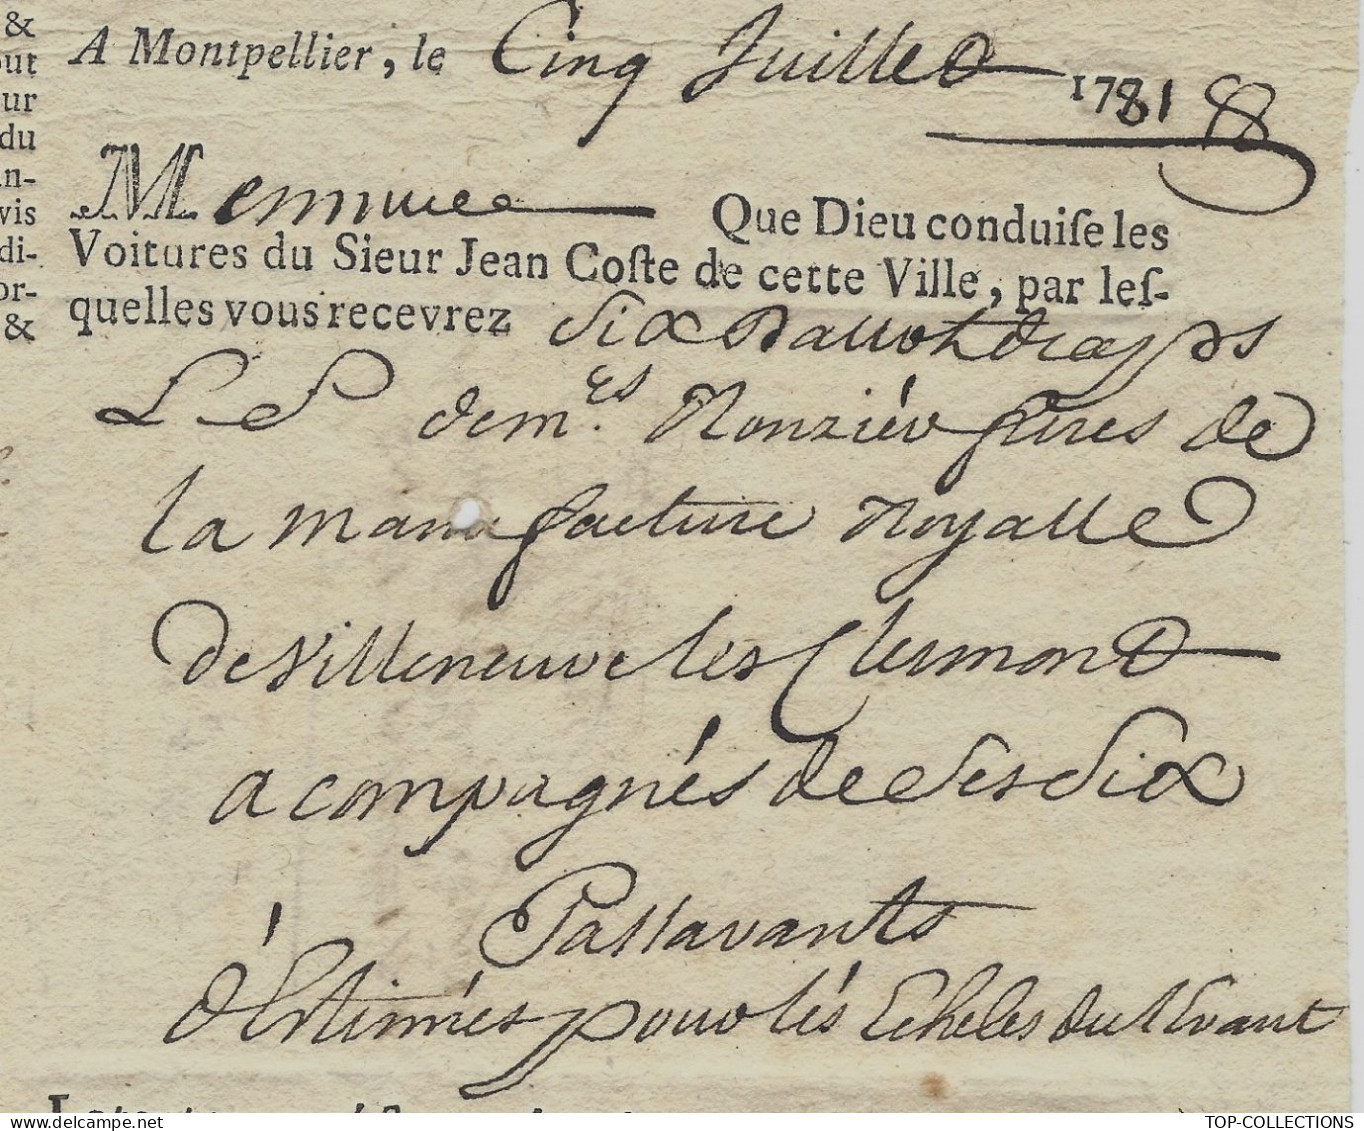 &
out
ur
du
n-
vis
di-
or-
&
A Montpellier, le Cinq Juillet 1781 88
M Que Dieu conduiſe les
Voitures du Sieur Jean Coſte de cette Ville, par leſ-
quelles vous recevrez Six Ballots draps
L P de m.rs Ronzier freres de
la manufacture Royalle
de Villeneuve les Clermont
acompagnés de Ses Six
Passavants
déstinnés pour lés Echeles du Lévant
TOP-COLLECTIONS